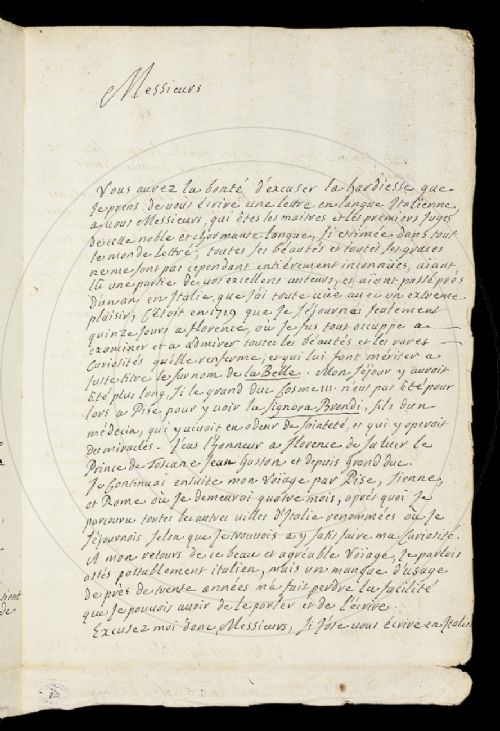 Messieurs
Vous aurez la bonté d'excuser la hardiesse que
je prens de vous écrire une lettre en langue Italienne,
a vous Messieurs, qui êtes les maitres et les premiers juges
de cette noble et charmante langue, si estimée dans tout
le monde lettré; toutes ses béautés et toutes ses graces
ne me sont pas cependant entiérement inconnües, aiant
lû une partie de vos excellens auteurs, et aiant passé prés
d'un an en Italie, que j'ai toute vüe avec un extreme
plaisir; C'étoit en 1719 que je séjournai seulement
quinze jours a florence, où je fus tout occuppé a
examiner et a admirer toutes les béautés et les rares
curiosités qu'elle renferme, et qui lui font mériter a
juste titre le surnom de la Belle. Mon séjour y auroit
été plus long, si le grand duc Cosme III. n'eut pas été pour
lors a Pise pour y voir la Signora Brondi, fils d'un
médecin, qui y vivoit en odeur de sainteté, et qui y operoit
des miracles. J'eus l'honneur a florence de saluer le
Prince de Toscane Jean Gaston et depuis grand duc.
Je continuai ensuite mon voiage par Pise, Sienne,
et Rome où je demeurai quatre mois, aprés quoi je
parcouru toutes les autres villes d'Italie renommées où je
séjournois selon que je trouvois a y satisfaire ma curiosité.
A mon retours de ce beau et agréable voiage, je parlois
assés passablement italien, mais un manque d'usage
de prés de trente années m'a fait perdre la facilité
que je pouvois avoir de le parler et de l'écrire.
Excusez moi donc Messieurs, si j'ose vous écrire en Italie
de